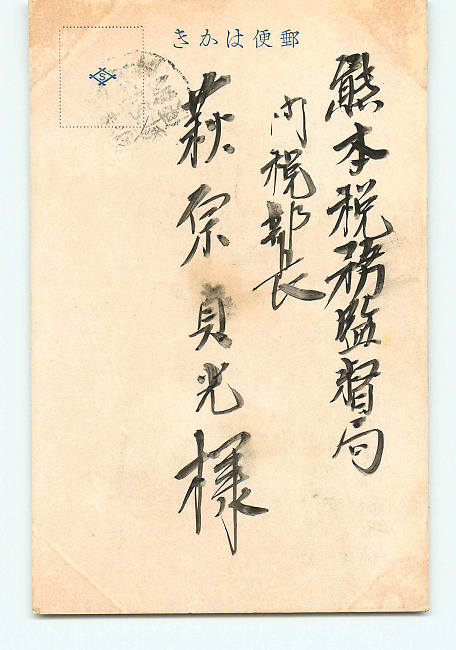 郵便はかき
熊本税務監督局
間税部長
萩原貞光様
S